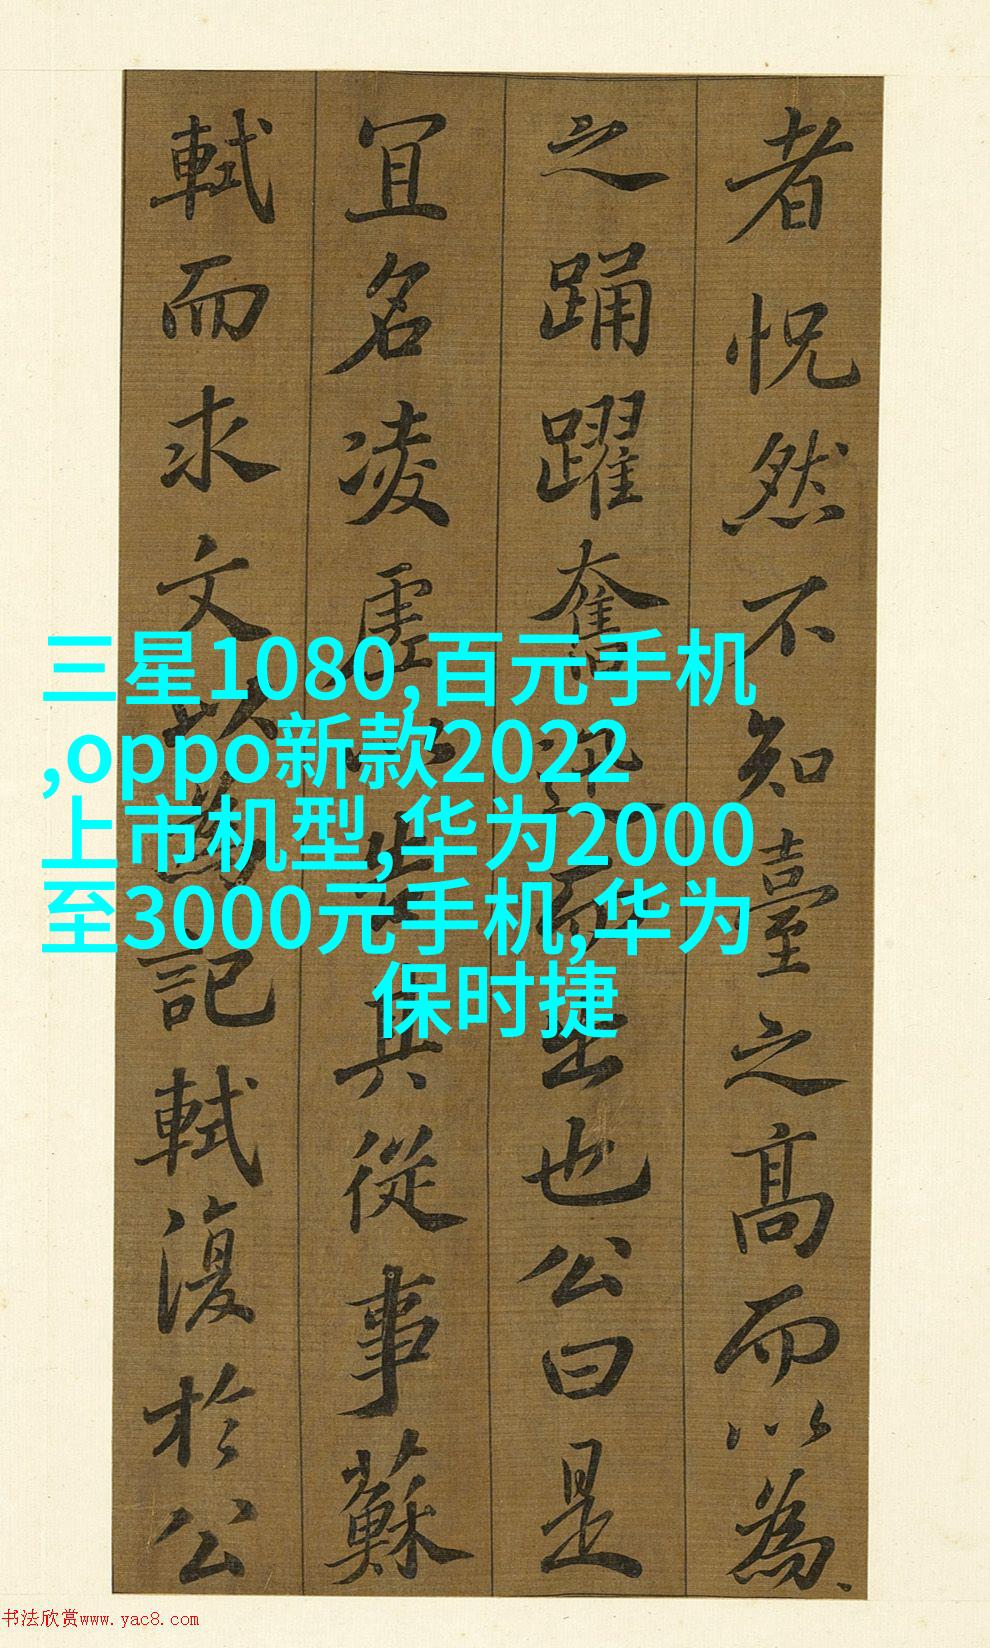 者怳然不知臺之髙而以為
之踊躍奮迅而出也公曰是
冝名凌虛以告其從事蘇
軾而求文以為記軾復於公
三星1080,百元手机
,oppo新款2022
上市机型,华为2000
至3000元手机,华为
保时捷
书法欣赏www.yac8.com